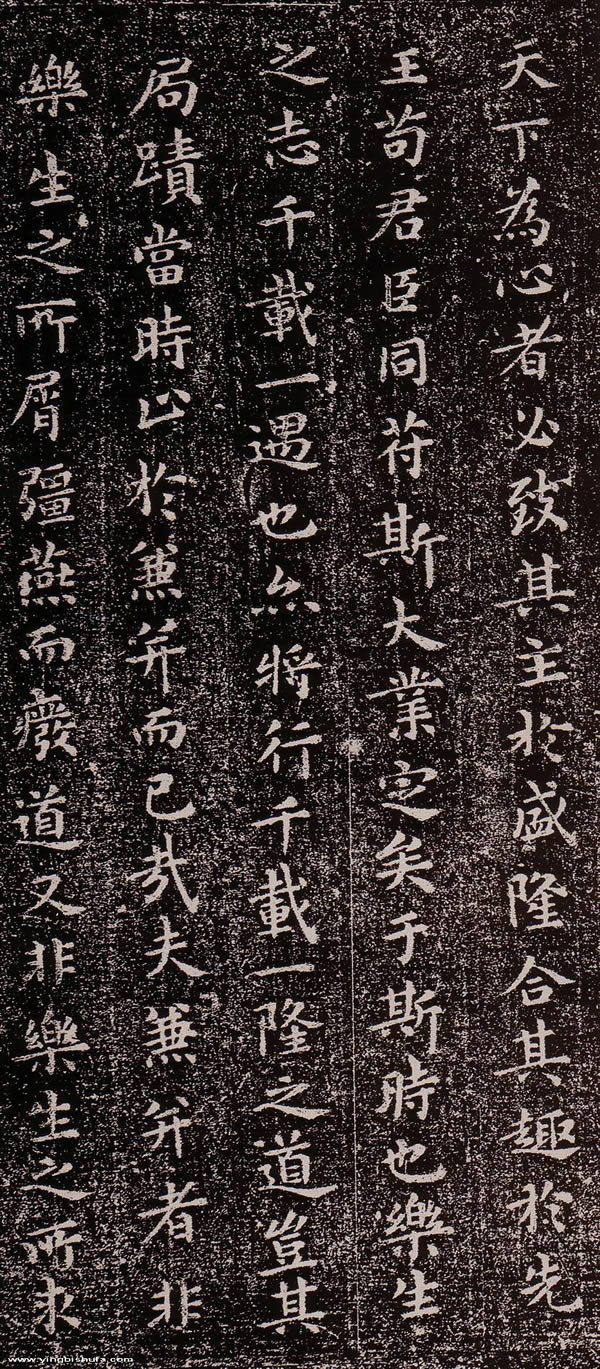 天下為心者必致其主於盛隆合其趣於先
王苟君臣同苻斯大業定矣于斯時也樂生
之志千載一遇也亦將行千載一隆之道豈其
局蹟當時止於兼并而已哉夫兼并者非
樂生之所屑彊燕而廢道又非樂生之所求
www.yingbishufa.com